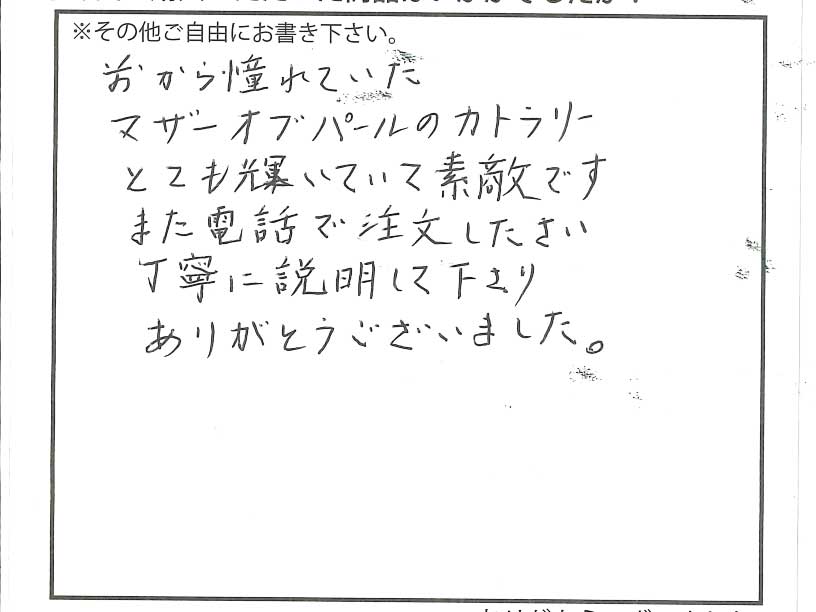 ※その他ご自由にお書き下さい。
から憧れていた
マザーオブパールのカトラリー
とても輝いていて素敵です
また電話で注文したさい
丁寧に説明して下さり
ありがとうございました。